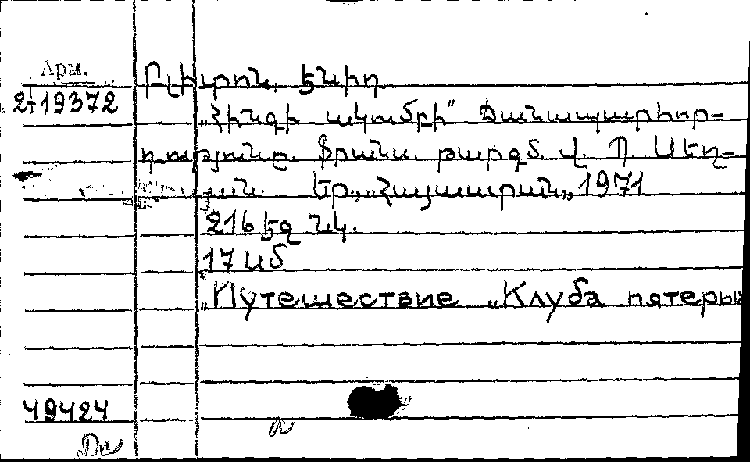 Арм.
2-19372
Բլիտոն, Էնիդ
„Հինգի ակումբի" Ճանապարհոր-
դությունը. Ֆրանս. թարգմ. Վ. Պ. Սեդ-
յան. Եր., „Հայաստան„ 1971
216 էջ նկ.
17 սմ
„Путешествие „Клуба пятеры
49424